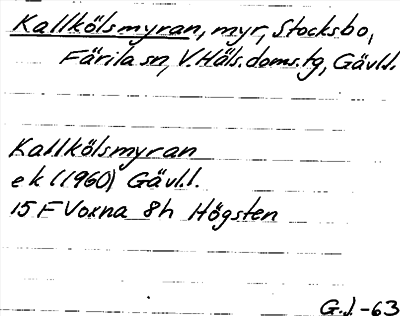 Kallkölsmyran, myr, Stocksbo,
Färila sn, V. Häls. doms. tg, Gävl.l.
Kallkölsmyran
ek (1960) Gävl.l.
15 F Voxna 8h Högsten
G.J.-63